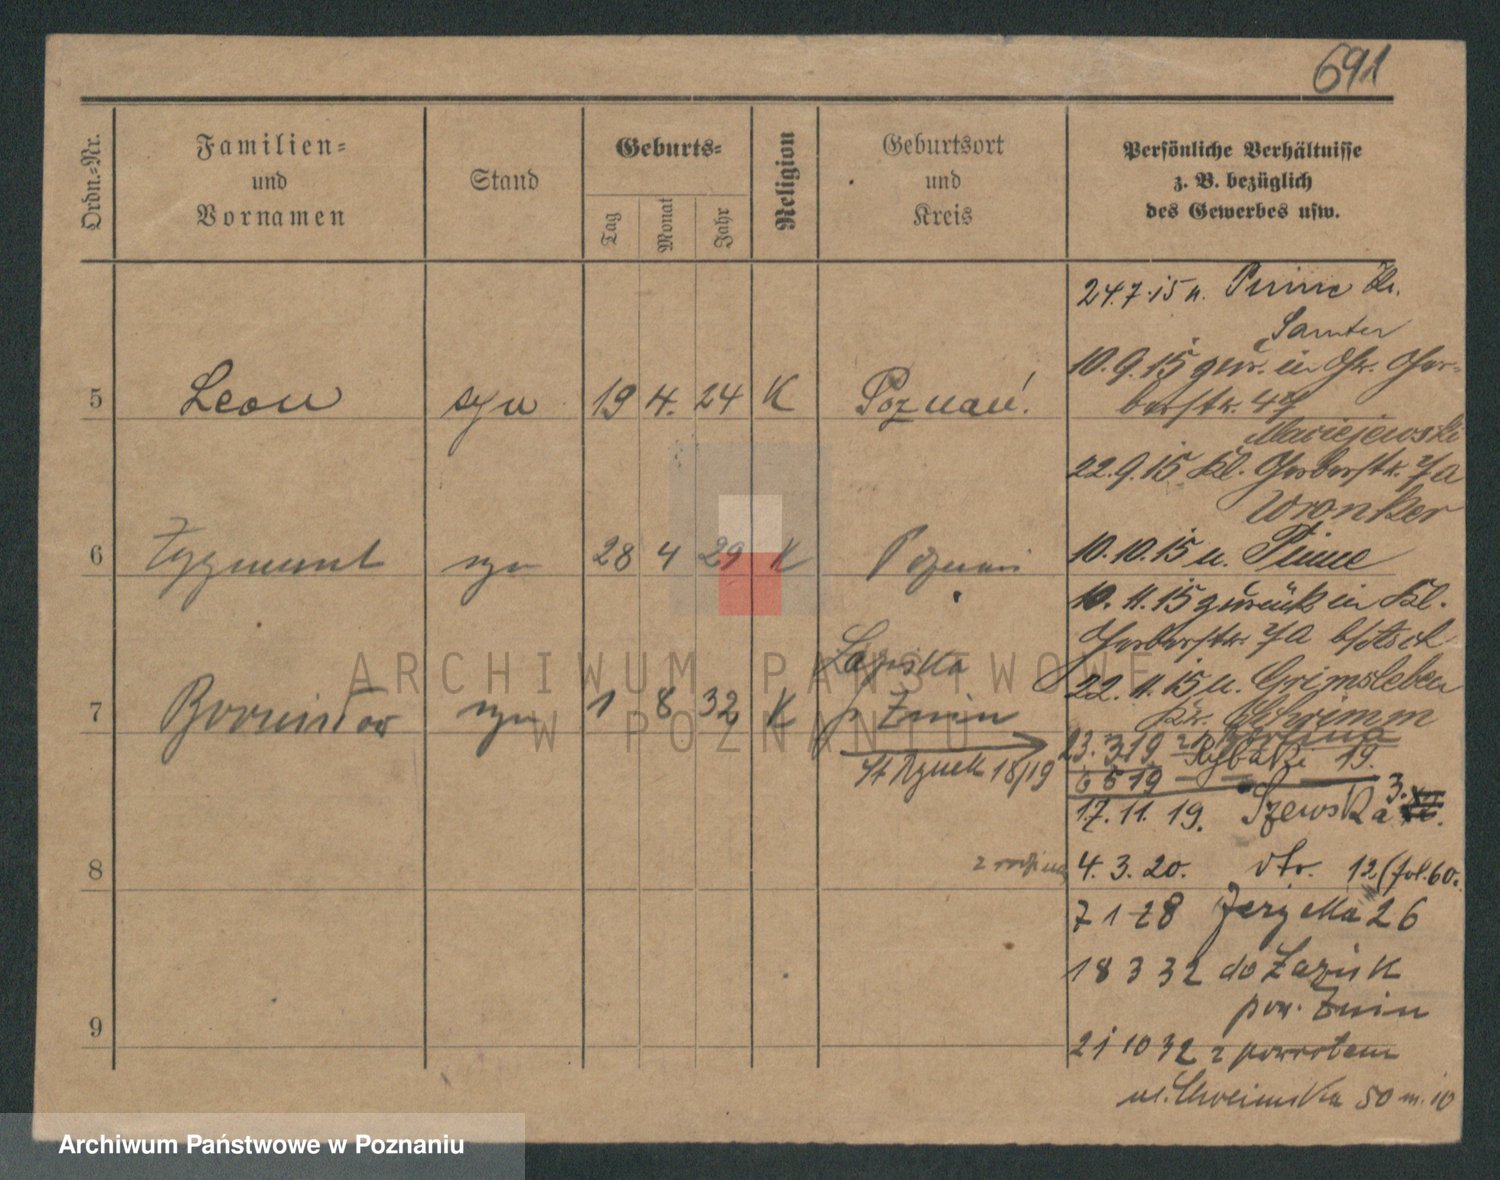 691
Ordn.-Nr.
Familien-
und
Vornamen
Stand
Geburts-
Tag
Monat
Jahr
Religion
Geburtsort
und
Kreis
Persönliche Verhältnisse
z. B. bezüglich
des Gewerbes usw.
24.7.15 n. Pinne Kr.
Samter
10.9.15 zur. in Gr. Ger-
berstr. 47
Maciejewski
5 Leon syn 19 4. 24 K Poznań!
22.9.15 Kl. Gerberstr. 7a
Wronker
6 Zygmunt syn 28 4 29 K Poznań
10.10.15 n. Pinne
10.11.15 zurück in Kl.
Gerberstr. 7a
22.11.15 n. Grimsleben
Kr. Schrimm
7 Bronisław syn 1 8 32 K Łaziska
p Żnin
St Rynek 18/19
23.3.19 Rybaki 19.
6 6 19
17.11.19. Szewska 3.
8 z rodziną 4.3.20. dto. 12 (fol. 60.
7 1 28 Jerzyka 26
18 3 32 do Łazisk
pow. Żnin
9
21 10 32 z powrotem
ul. 50 m. 10
ARCHIWUM PAŃSTWOWE
W POZNANIU
Archiwum Państwowe w Poznaniu